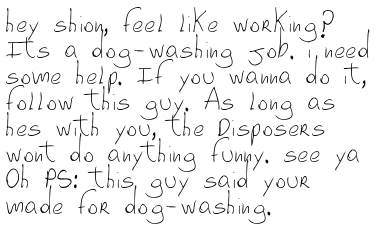 hey shion, feel like working?
Its a dog-washing job. i need
some help. If you wanna do it,
follow this guy. As long as
hes with you, the Disposers
wont do anything funny. see ya
Oh PS: this guy said your
made for dog-washing.